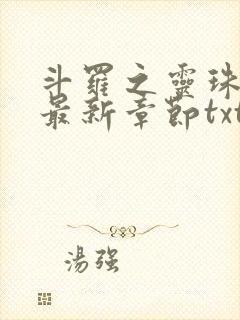 斗羅之靈珠
最新章節txt
湯強